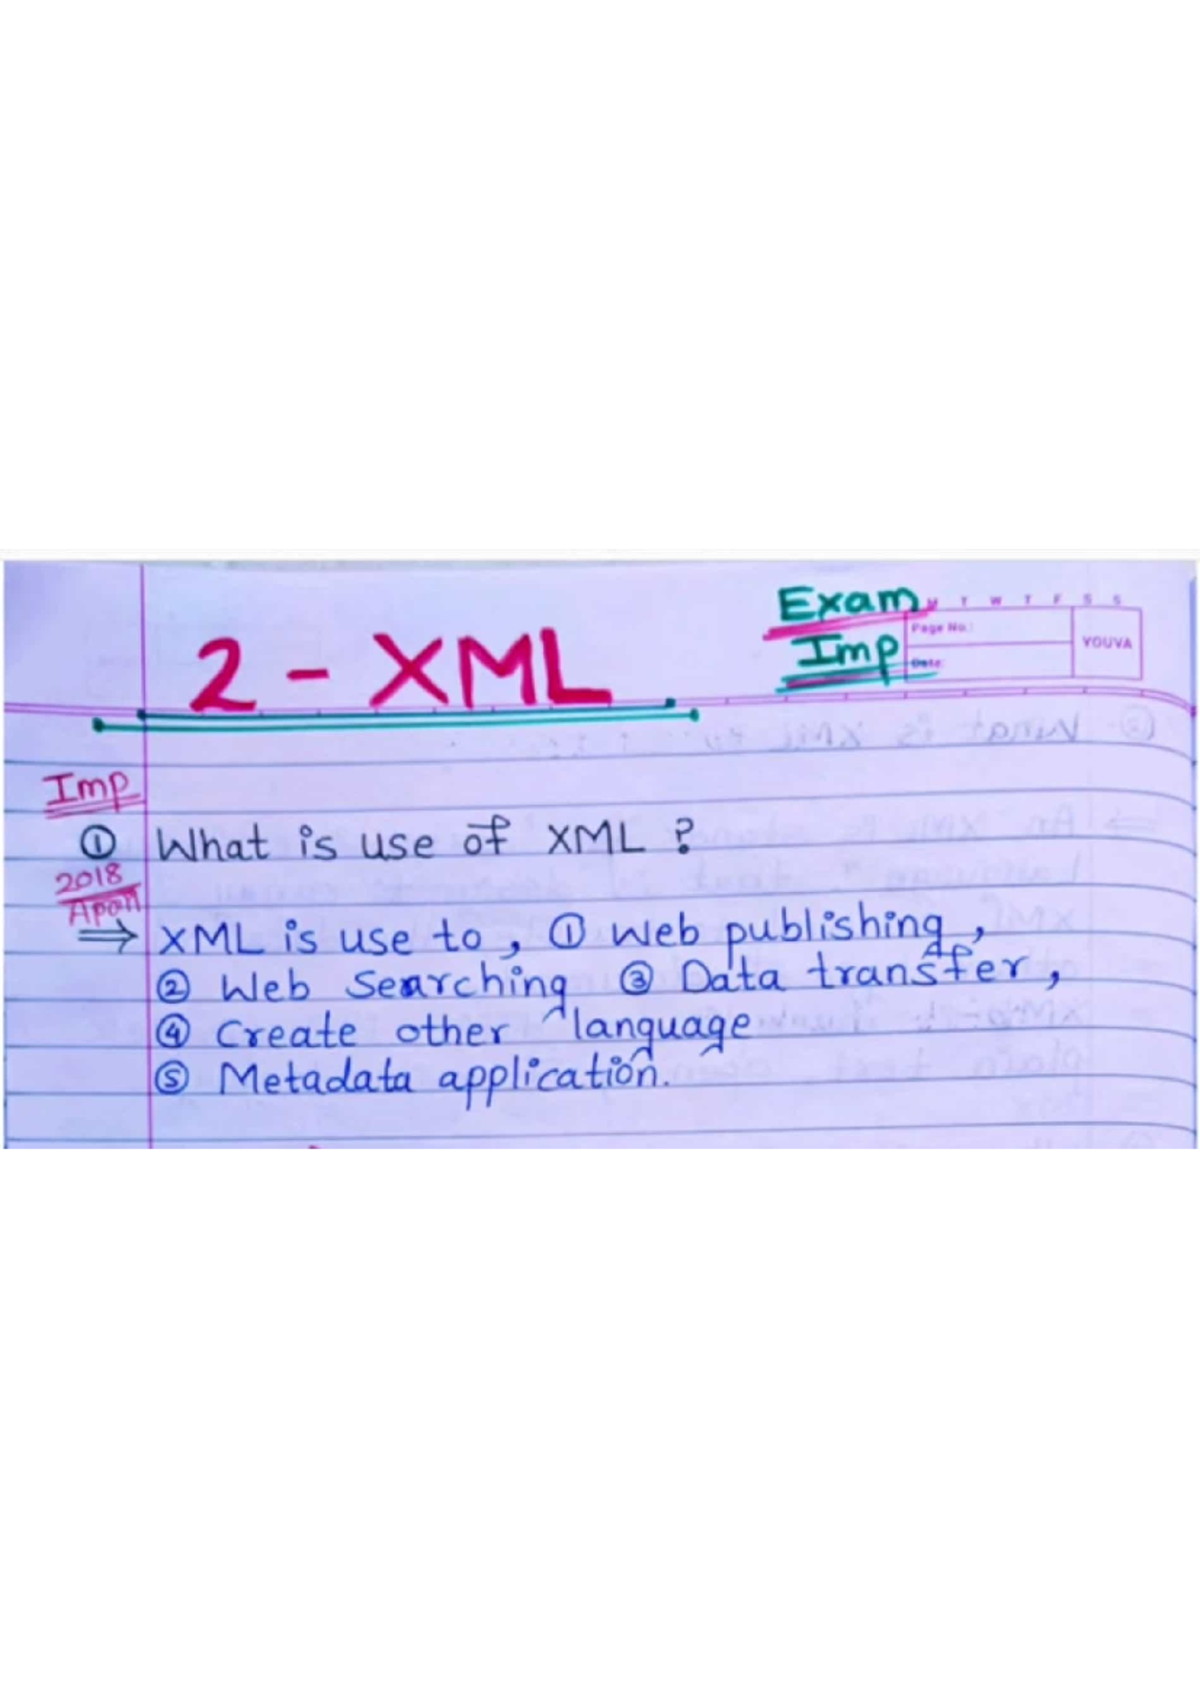 Exam
M T W T F S S
Page No.:
YOUVA
2 - XML
Imp
Date:
Imp
① What is use of XML ?
2018
⇒ XML is use to , ① Web publishing ,
② Web Searching ③ Data transfer ,
④ Create other language
⑤ Metadata application.